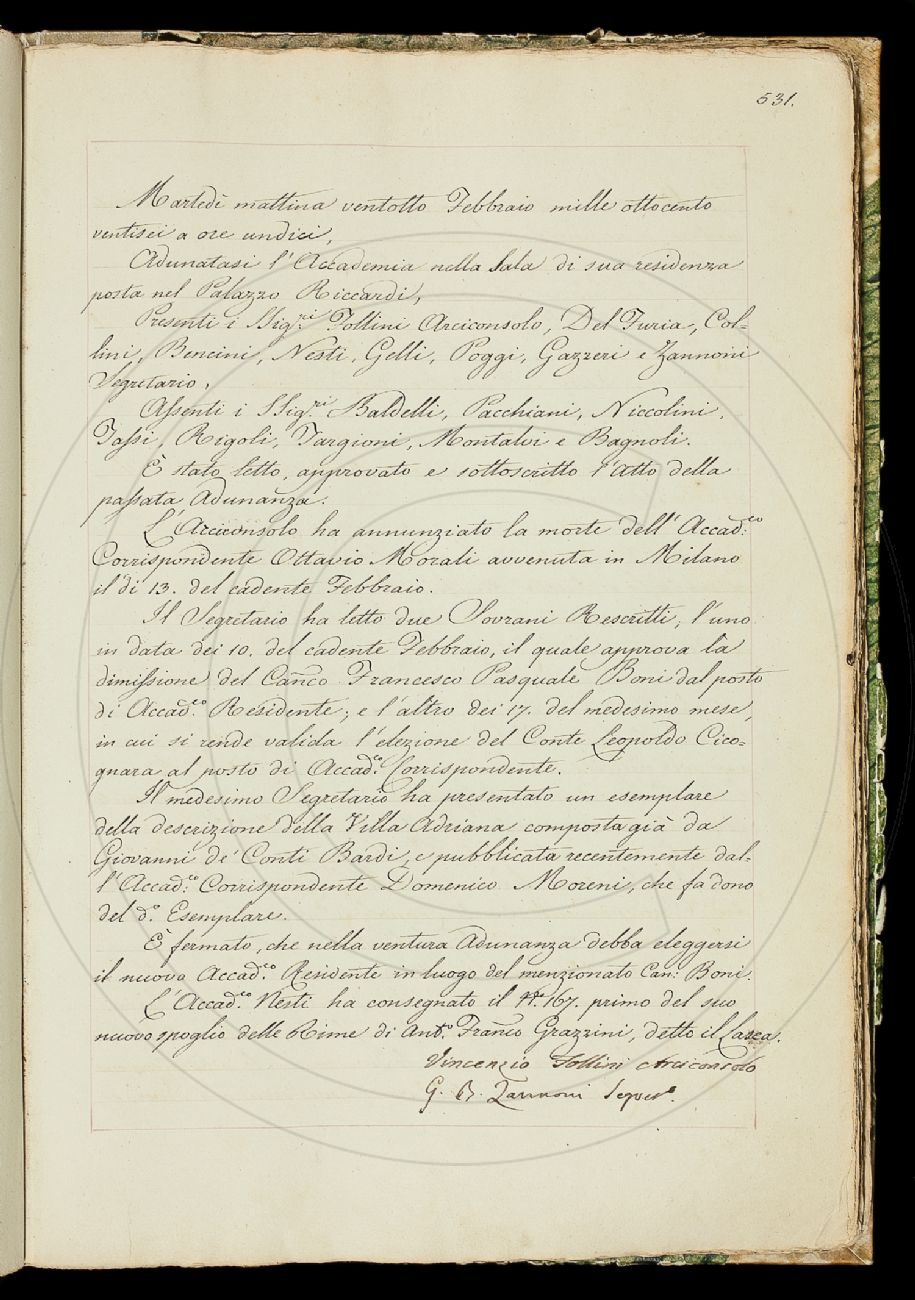 531.
Martedì mattina ventotto Febbraio mille ottocento
ventisei a ore undici,
Adunatasi l'Accademia nella Sala di sua residenza
posta nel Palazzo Riccardi,
Presenti i SSig.ri Follini Arciconsolo, Del Furia, Col=
lini, Bencini, Nesti, Gelli, Poggi, Gazzeri e Zannoni
Segretario,
Assenti i SSig.ri Baldelli, Pacchiani, Niccolini,
Tassi, Rigoli, Targioni, Montalvi e Bagnoli.
È stato letto, approvato e sottoscritto l'Atto della
passata Adunanza.
L'Arciconsolo ha annunziato la morte dell'Accad:co
Corrispondente Ottavio Morali avvenuta in Milano
il dì 13. del cadente Febbraio.
Il Segretario ha letto due Sovrani Rescritti; l'uno
in data dei 10. del cadente Febbraio, il quale approva la
dimissione del Canco Francesco Pasquale Boni dal posto
di Accad:co Residente; e l'altro dei 17. del medesimo mese,
in cui si rende valida l'elezione del Conte Leopoldo Cico=
gnara al posto di Accad:co Corrispondente.
Il medesimo Segretario ha presentato un esemplare
della descrizione della Villa Adriana composta già da
Giovanni de' Conti Bardi, e pubblicata recentemente dal=
l'Accad:co Corrispondente Domenico Moreni, che fa dono
del d.o Esemplare.
È fermato, che nella ventura Adunanza debba eleggersi
il nuovo Accad:co Residente in luogo del menzionato Can: Boni.
L'Accad:co Nesti ha consegnato il N.o 167. primo del suo
nuovo spoglio delle Rime di Ant.o Franco Grazzini, detto il Lasca.
Vincenzio Follini Arciconsolo
G. B. Zannoni Segret.o